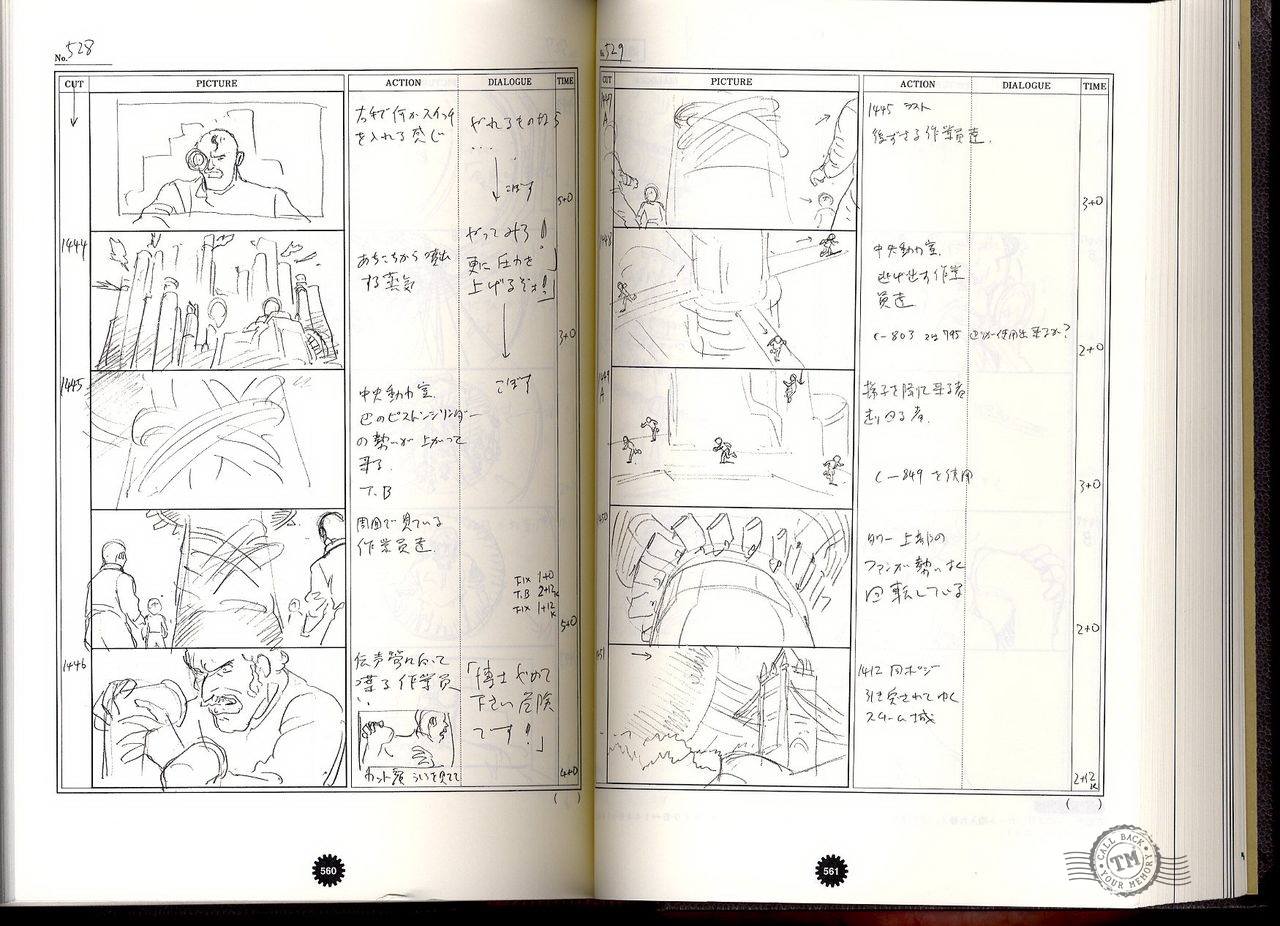 No. 528
CUT PICTURE ACTION DIALOGUE TIME
右手で何かスイッチ
を入れる感じ
やれるものなら
...
こぼす
5+0
1444
あちこちから噴出
する蒸気
やってみろ!
更に圧力を
上げるぞォ!」
3+0
1445
中央動力室
巴のピストンシリンダー
の勢いが上がって
来る
T.B
こぼす
周囲で見ている
作業員達
FIX 1+0
T.B 2+12K
FIX 1+12K
5+0
1446
伝声管に向って
喋る作業員
「博士やめて
下さい危険
です!」
4+0
( )
560
No. 529
CUT PICTURE ACTION DIALOGUE TIME
1447
A
1445 ラスト
後ずさる作業員達.
3+0
1448
中央動力室.
逃げ出す作業
員達
2+0
1449
A
様子を聞に来る者
走り回る者.
C-849 を使用
3+0
1450
タワー上部の
ファンが勢いよく
回転している
2+0
1451
1412 同ポジ
引き戻されてゆく
スチーム城
2+12K
( )
561
CALL BACK
TM
YOUR MEMORY